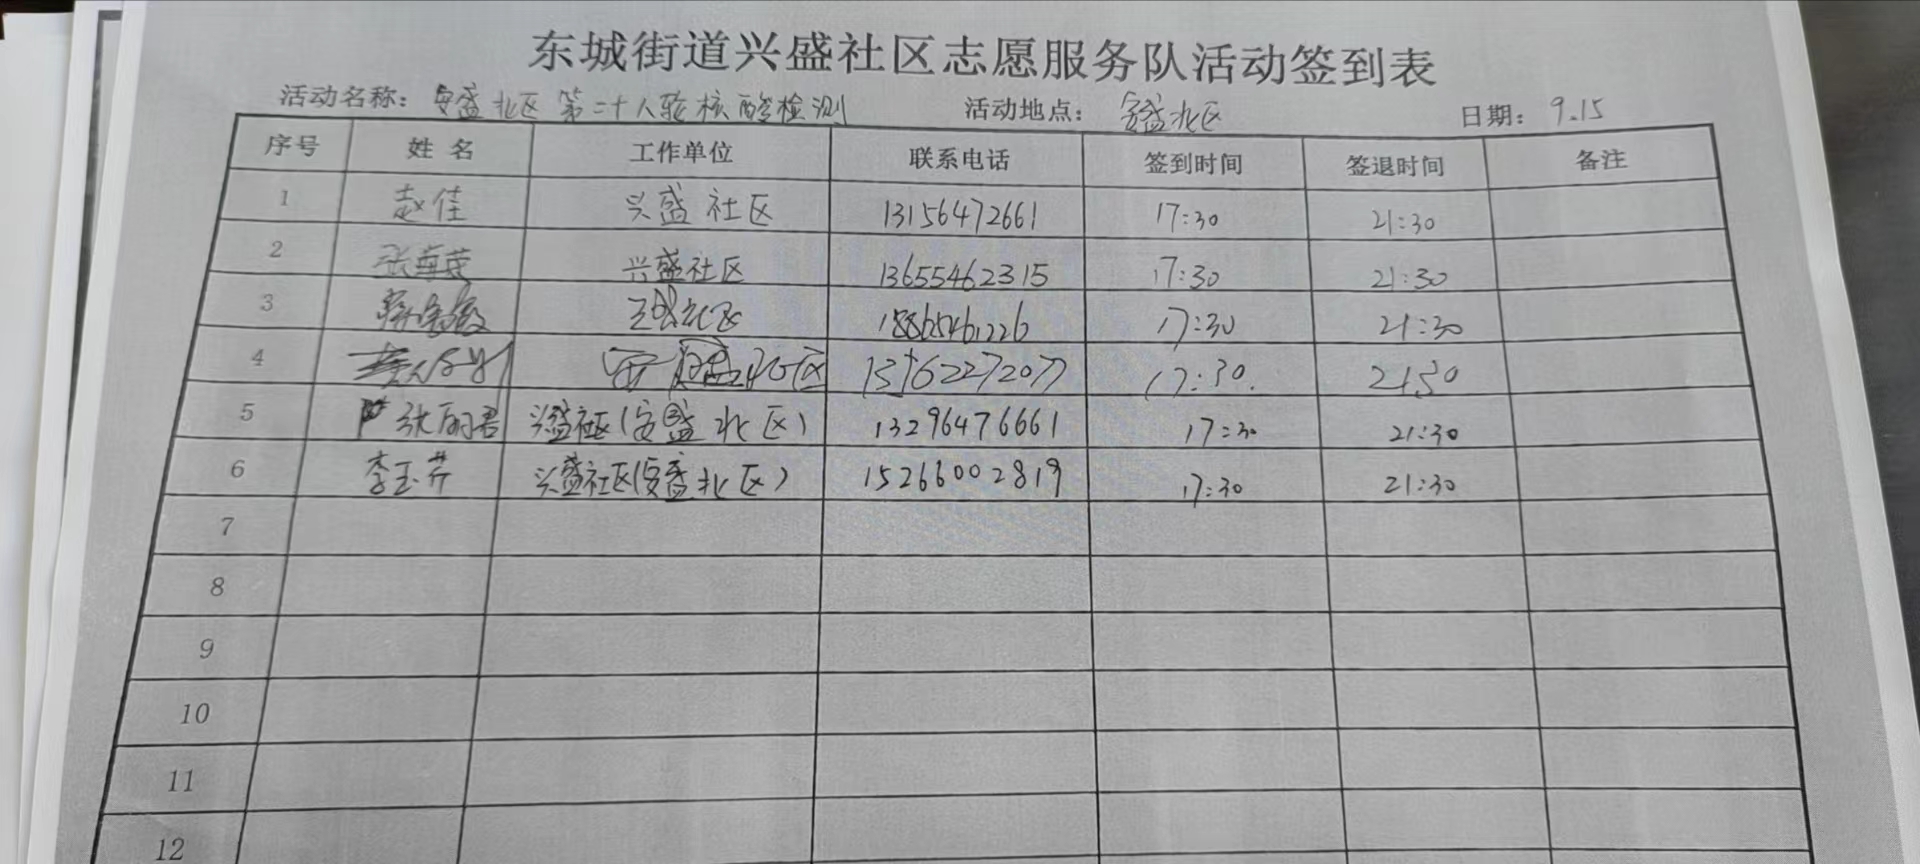 东城街道兴盛社区志愿服务队活动签到表
活动名称：安盛北区第二十八轮核酸检测 活动地点：安盛北区 日期：9.15
序号 姓名 工作单位 联系电话 签到时间 签退时间 备注
1 赵佳 兴盛社区 13156472661 17:30 21:30
2 兴盛社区 13655462315 17:30 21:30
3 18865461226 17:30 21:30
4 17:30. 21:30
5 张丽君 兴盛社区(安盛北区) 13296476661 17:30 21:30
6 李玉芹 兴盛社区(安盛北区) 15266002819 17:30 21:30
7
8
9
10
11
12